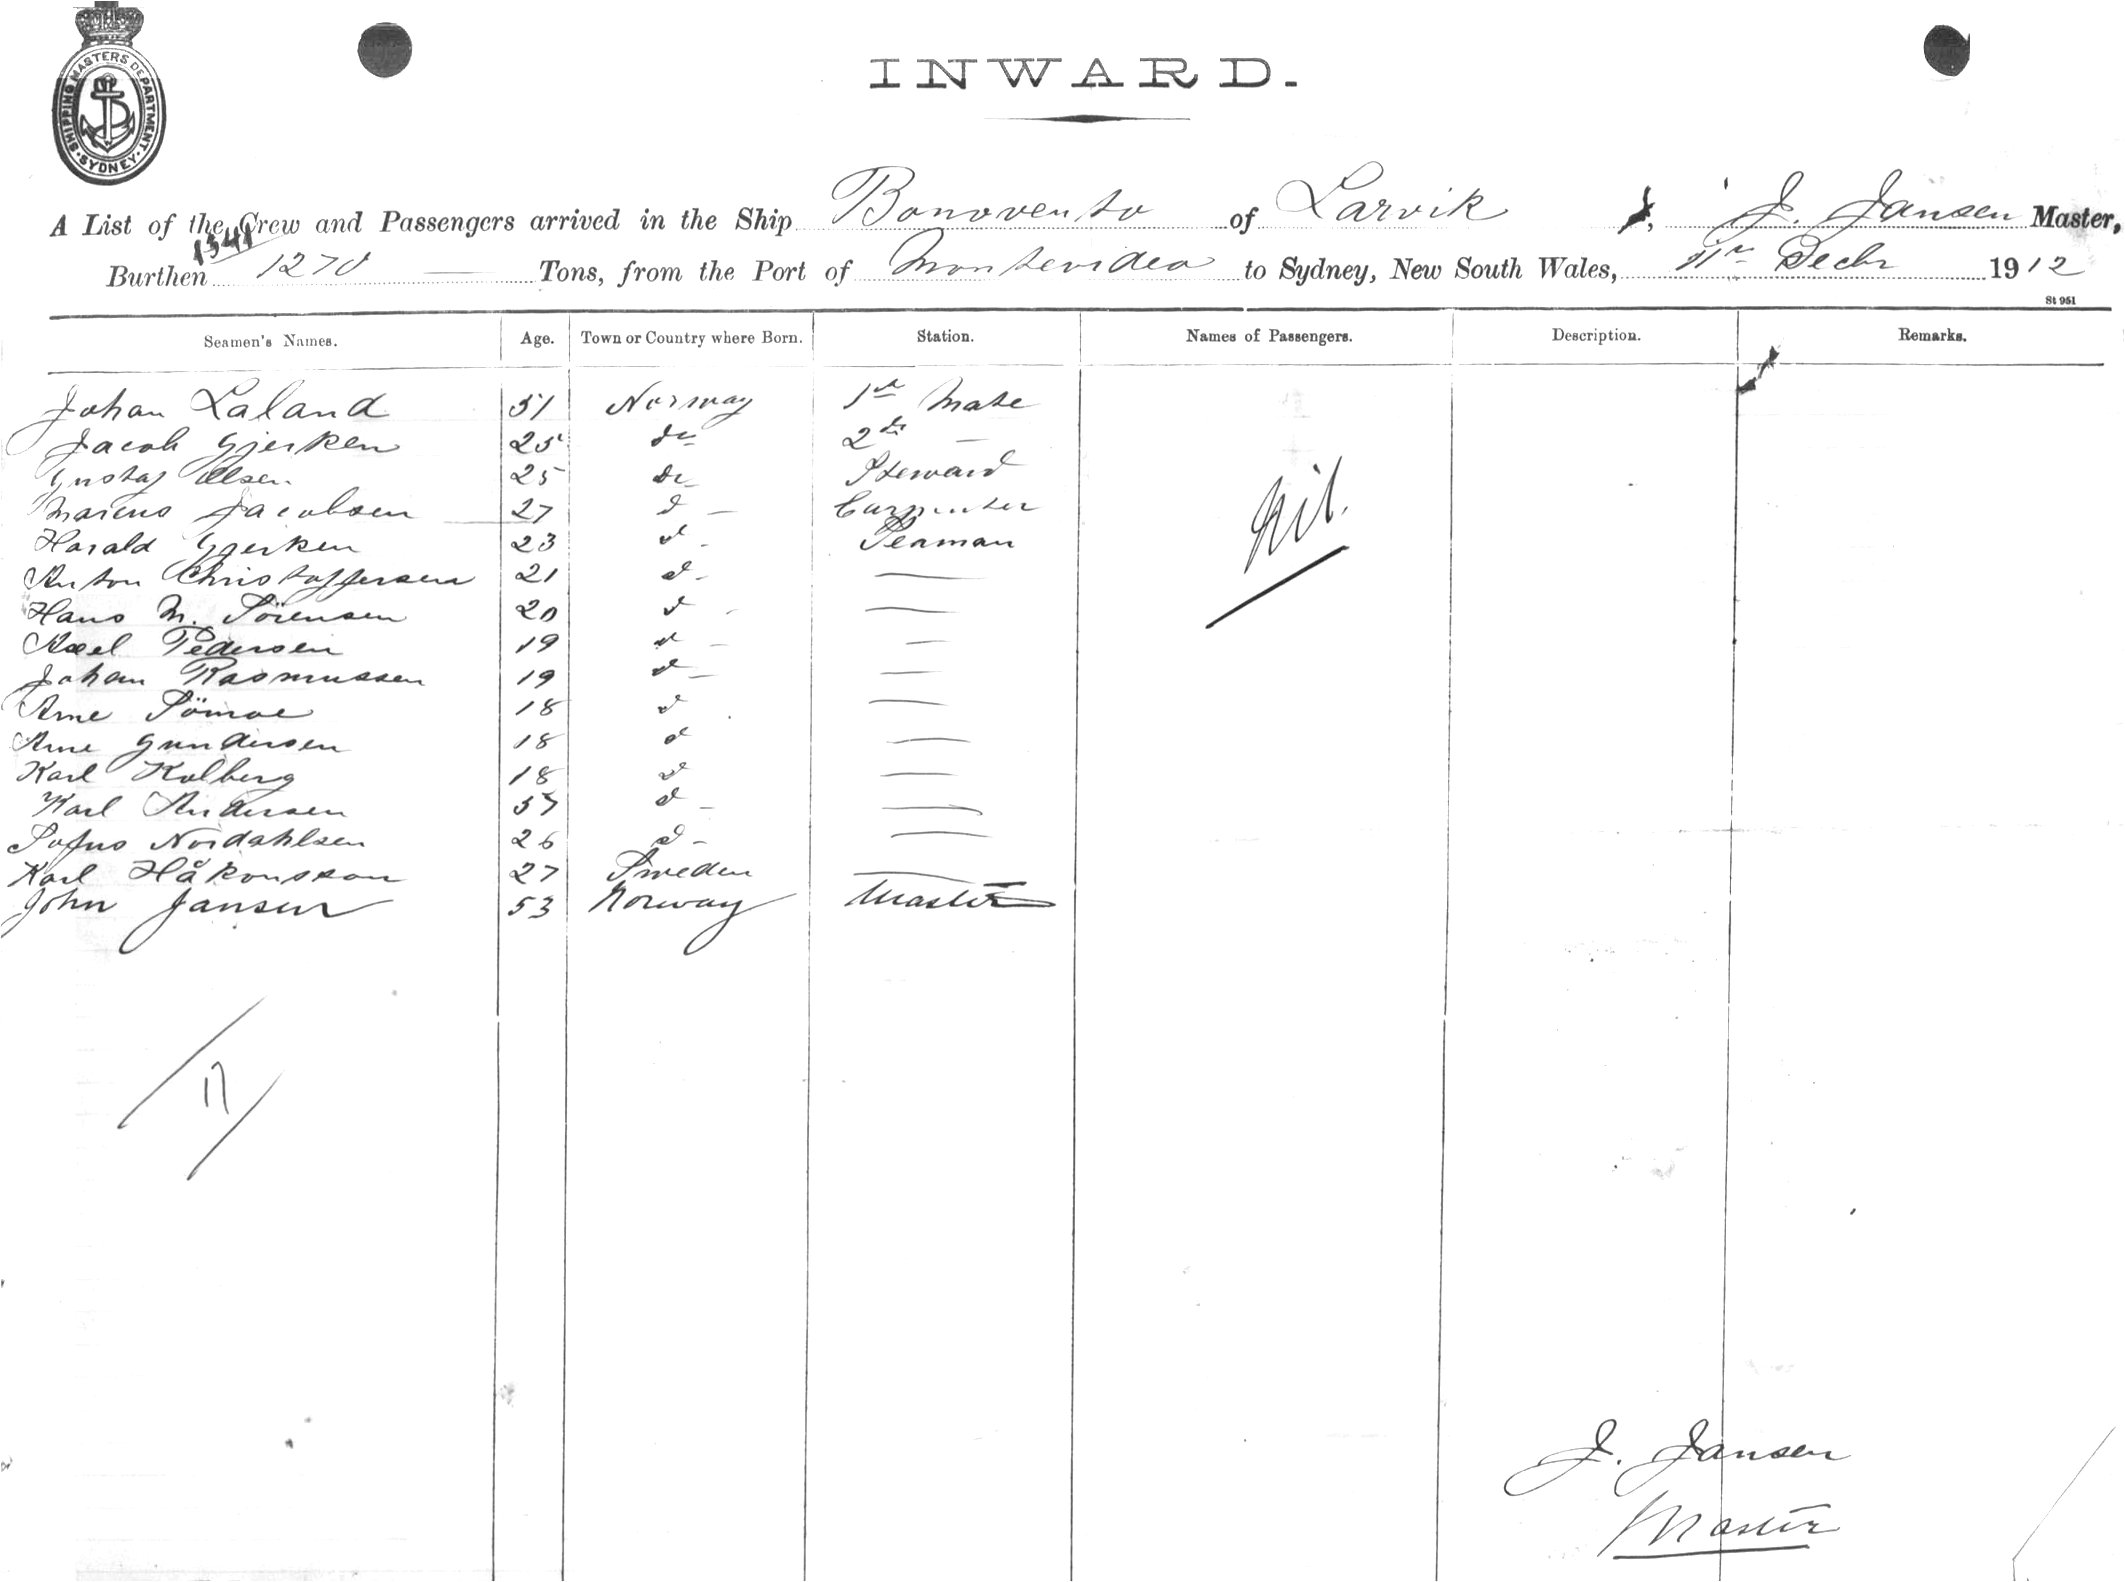 SHIPPING MASTERS DEPARTMENT · SYDNEY ·
INWARD.
A List of the Crew and Passengers arrived in the Ship Bonovento of Larvik, J. Jansen Master,
1341
Burthen 1270 Tons, from the Port of Montevideo to Sydney, New South Wales, 11th Decbr 1912
St 951
Seamen's Names. Age. Town or Country where Born. Station. Names of Passengers. Description. Remarks.
Johan Laland 51 Norway 1st Mate
Jacob Gjerken 25 do 2d —
Gustaf Olsen 25 do Steward
Marcus Jacobsen 27 d — Carpenter
Harald Gjerken 23 d - Seaman
Nil.
Anton Christoffersen 21 d - —
Hans M. Sörensen 20 d - —
Axel Pedersen 19 d - —
Johan Rasmussen 19 d - —
Arne Sömoe 18 d —
Arne Gundersen 18 d —
Karl Kolberg 18 d —
Karl Andersen 57 d - —
Sofus Nordahlsen 26 d - —
Karl Håkonsson 27 Sweden —
John Jansen 53 Norway Master
17
J. Jansen
Master